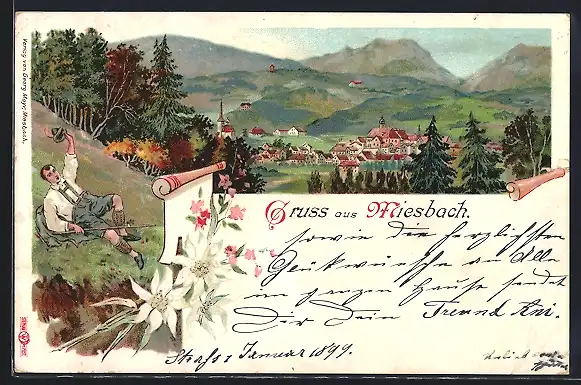 Verlag von Georg Mayr, Miesbach.
Gruss aus Miesbach.
sowie die herzlichsten
Glückwünsche an Alle
im ganzen Hause sendet
Dir Dein Freund Ani.
Januar 1899.